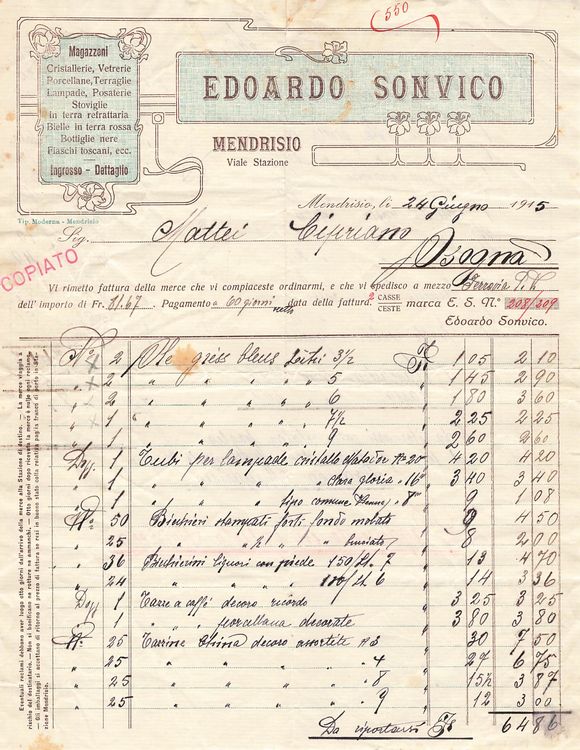 550
Magazzeni
Cristallerie, Vetrerie
Porcellane, Terraglie
Lampade, Posaterie
Stoviglie
In terra refrattaria
Bielle in terra rossa
Bottiglie nere
Fiaschi toscani, ecc.
Ingrosso - Dettaglio
EDOARDO SONVICO
MENDRISIO
Viale Stazione
Tip. Moderna - Mendrisio
Mendrisio, li 24 Giugno 1915
Sig. Mattei Cipriano
Osogna
COPIATO
Vi rimetto fattura della merce che vi compiaceste ordinarmi, e che vi spedisco a mezzo Ferrovia P.V.
dell'importo di Fr. 81.67 Pagamento a 60 giorni netto data della fattura. 2 CASSE CESTE marca E. S. N° 208/209
Edoardo Sonvico.
N° 2 griss bleus Litri 3 1/2 Fr 1 05 2 10
" 2 " " " " 5 " 1 45 2 90
" 2 " " " " 6 " 1 80 3 60
" 1 " " " " 7 1/2 " 2 25 2 25
" 1 " " " " 9 " 2 60 2 60
Dozz 1 Tubi per lampade cristallo N° 20 " 4 20 4 20
" 1 " " " " gloria " 16 " 3 40 3 40
" 1 " " " tipo comune " 8 " 9 1 08
N° 50 Bicchieri stampati forti fondo molato " 9 4 50
" 25 " " " " " 8 2 00
" 36 Bicchierini liquori con piede 150/Lt. 7 " 13 4 70
" 24 " " " " 100/Lt. 6 " 14 3 36
Dozz 1 Tazze a caffè decoro ricordo " 3 25 3 25
" 1 " " porcellana decorate " 3 80 3 80
N° 25 Terrine China decoro assortite N 3 " 30 7 50
" 25 " " " " " 4 " 27 6 75
" 25 " " " " " 8 " 15 1/2 3 87
" 25 " " " " " 9 " 12 3 00
Da riportarsi Fr 64 86
Eventuali reclami debbono aver luogo otto giorni dall'arrivo della merce alla Stazione di destino. — La merce viaggia a
rischio del destinatario. — Non si bonificano nè rotture nè ammanchi. — Otto giorni dopo ricevuta la merce è nullo ogni reclamo.
— Gli imballaggi si accettano di ritorno al prezzo di fattura se resi in buono stato colla relativa paglia franchi di porto in Sta-
zione Mendrisio.